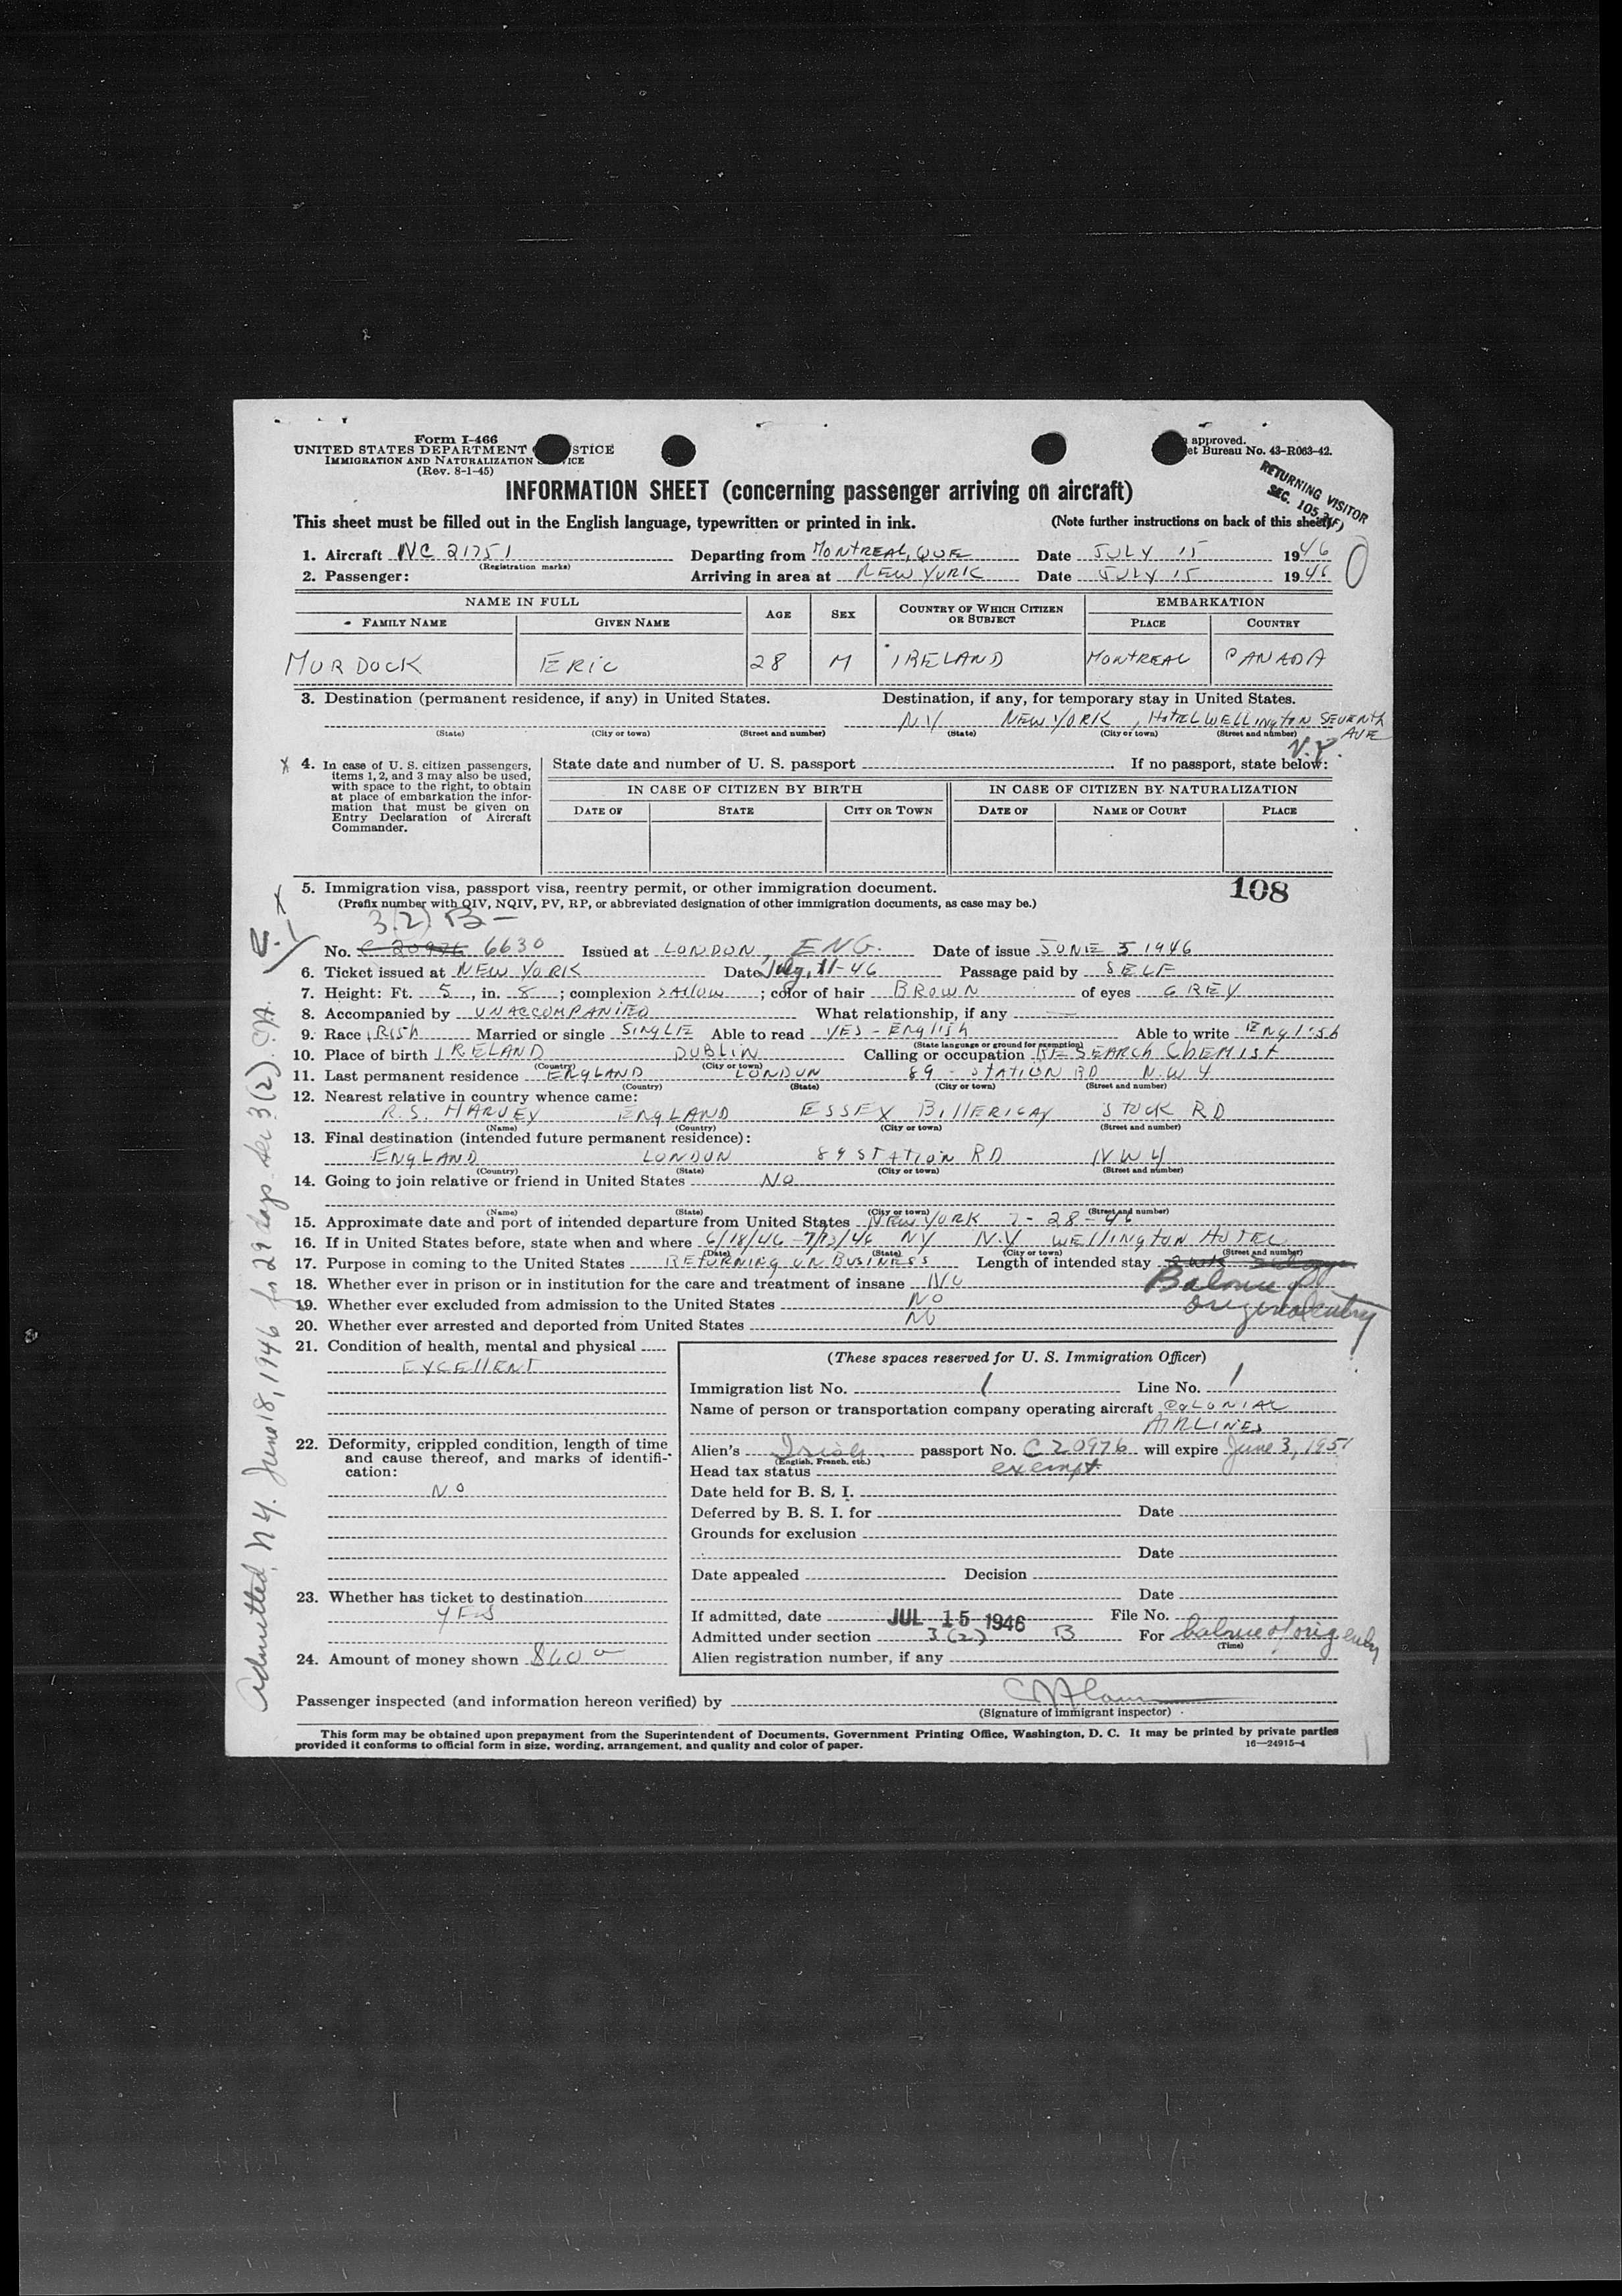 Form I-466
UNITED STATES DEPARTMENT STICE
IMMIGRATION AND NATURALIZATION S VICE
(Rev. 8-1-45)
approved.
et Bureau No. 43-R063-42.
RETURNING VISITOR
SEC. 105.3(F)
INFORMATION SHEET (concerning passenger arriving on aircraft)
This sheet must be filled out in the English language, typewritten or printed in ink. (Note further instructions on back of this sheet)
1. Aircraft NC 21751 Departing from MONTREAL, QUE Date JULY 15 1946
(Registration marks)
2. Passenger: Arriving in area at NEW YORK Date JULY 15 1946
NAME IN FULL AGE SEX COUNTRY OF WHICH CITIZEN OR SUBJECT EMBARKATION
FAMILY NAME GIVEN NAME PLACE COUNTRY
MURDOCK ERIC 28 M IRELAND MONTREAL CANADA
3. Destination (permanent residence, if any) in United States. Destination, if any, for temporary stay in United States.
NY NEW YORK, HOTEL WELLINGTON SEVENTH AVE
(State) (City or town) (Street and number) (State) (City or town) (Street and number)
N.Y.
4. In case of U. S. citizen passengers, items 1, 2, and 3 may also be used, with space to the right, to obtain at place of embarkation the information that must be given on Entry Declaration of Aircraft Commander.
State date and number of U. S. passport If no passport, state below:
IN CASE OF CITIZEN BY BIRTH IN CASE OF CITIZEN BY NATURALIZATION
DATE OF STATE CITY OR TOWN DATE OF NAME OF COURT PLACE
5. Immigration visa, passport visa, reentry permit, or other immigration document. 108
(Prefix number with QIV, NQIV, PV, RP, or abbreviated designation of other immigration documents, as case may be.)
3(2) B-
No. C 20976 6630 Issued at LONDON, ENG. Date of issue JUNE 5 1946
6. Ticket issued at NEW YORK Date July, 11-46 Passage paid by SELF
7. Height: Ft. 5, in. 8; complexion SALLOW; color of hair BROWN of eyes GREY
8. Accompanied by UNACCOMPANIED What relationship, if any —
9. Race IRISH Married or single SINGLE Able to read YES - ENGLISH Able to write ENGLISH
(State language or ground for exemption)
10. Place of birth IRELAND DUBLIN Calling or occupation RESEARCH CHEMIST
(Country) (City or town)
11. Last permanent residence ENGLAND LONDON 89 - STATION RD N.W 4
(Country) (State) (City or town) (Street and number)
12. Nearest relative in country whence came:
R.S. HARVEY ENGLAND ESSEX BILLERICAY STOCK RD
(Name) (Country) (City or town) (Street and number)
13. Final destination (intended future permanent residence):
ENGLAND LONDON 89 STATION RD NW4
(Country) (State) (City or town) (Street and number)
14. Going to join relative or friend in United States NO
(Name) (State) (City or town) (Street and number)
15. Approximate date and port of intended departure from United States NEW YORK 7-28-46
16. If in United States before, state when and where 6/18/46-7/12/46 NY N.Y WELLINGTON HOTEL
(Date) (State) (City or town) (Street and number)
17. Purpose in coming to the United States RETURNING ON BUSINESS Length of intended stay
Balance of
original entry
18. Whether ever in prison or in institution for the care and treatment of insane NO
19. Whether ever excluded from admission to the United States NO
20. Whether ever arrested and deported from United States NO
21. Condition of health, mental and physical
EXCELLENT
22. Deformity, crippled condition, length of time and cause thereof, and marks of identification:
NO
23. Whether has ticket to destination
YES
24. Amount of money shown
(These spaces reserved for U. S. Immigration Officer)
Immigration list No. 1 Line No. 1
Name of person or transportation company operating aircraft COLONIAL
AIRLINES
Alien's Irish passport No. C 20976 will expire June 3, 1951
(English, French, etc.)
Head tax status exempt
Date held for B. S. I.
Deferred by B. S. I. for Date
Grounds for exclusion
Date
Date appealed Decision
Date
If admitted, date JUL 15 1946 File No.
Admitted under section 3(2) B For balance of orig entry
(Time)
Alien registration number, if any
Passenger inspected (and information hereon verified) by
(Signature of immigrant inspector)
This form may be obtained upon prepayment from the Superintendent of Documents, Government Printing Office, Washington, D. C. It may be printed by private parties
provided it conforms to official form in size, wording, arrangement, and quality and color of paper. 16—24915-4
Admitted N.Y. June 18, 1946 for 29 days sec 3(2)